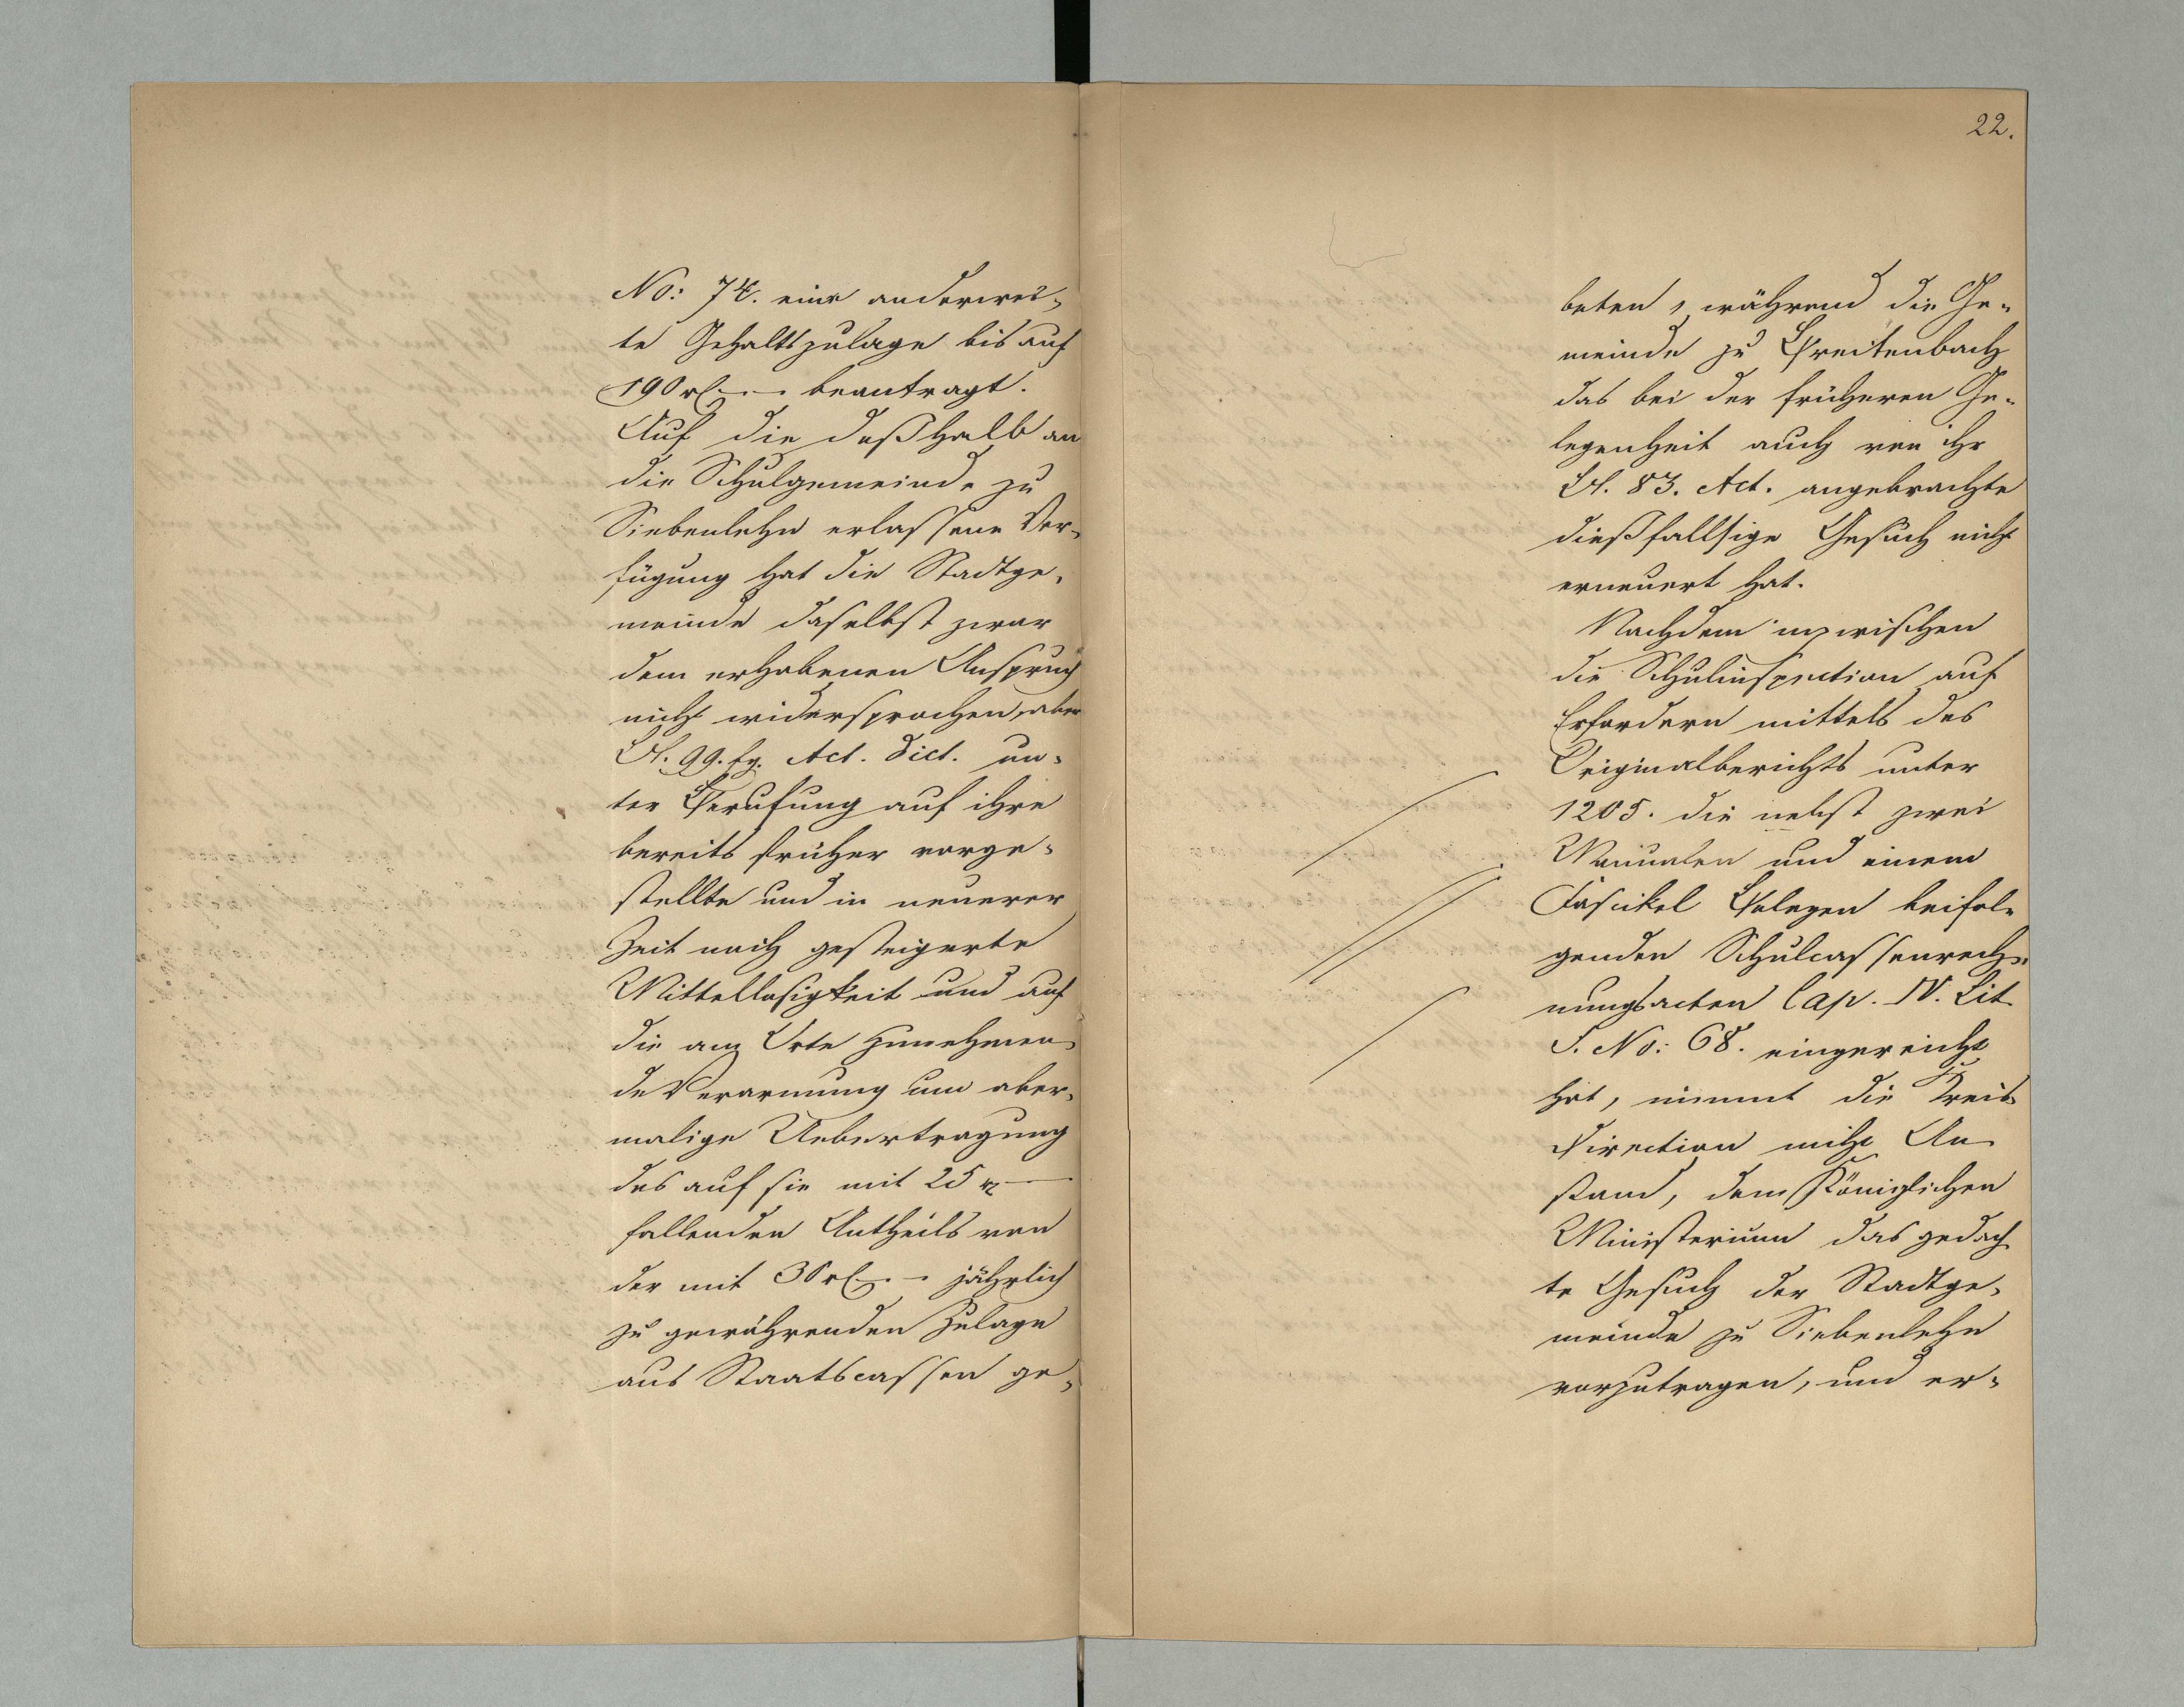 No: 74. eine anderwei-
te Gehaltszulage bis auf
190 rl. -. - beantragt.
Auf die deßhalb an
die Schulgemeinde zu
Siebenlehn erlassene Ver-
fügung hat die Stadtge-
meinde daselbst zwar
dem erhobenen Anspruch
nicht widersprochen, aber
Bl. 99. fg. Act. dict. un-
ter Berufung auf ihre
bereits früher vorge-
stellte und in neuerer
Zeit noch gesteigerte
Mittellosigkeit und auf
die am Orte zunehmen-
de Verarmung um aber-
malige Uebertragung
des auf sie mit 25 rl -
fallenden Antheils von
der mit 30 rl. -. - jährlich
zu gewährenden Zulage
aus Staatscassen ge-
22.
beten, während die Ge-
meinde zu Breitenbach
das bei der früheren Ge-
legenheit auch von ihr
Bl. 83. Act. angebrachte
dießfallsige Gesuch nicht
erneuert hat.
Nachdem inzwischen
die Schulinspection auf
Erfordern mittels des
Originalberichts unter
1205. die nebst zwei
Manualen und einem
Fascikel Belegen beifol-
genden Schulcassenrech-
nungsacten Cap. IV. Lit.
S. No: 68. eingereicht
hat, nimmt die Kreis-
Direction nicht An-
stand, dem Königlichen
Ministerium das gedach-
te Gesuch der Stadtge-
meinde zu Siebenlehn
vorzutragen, und er-